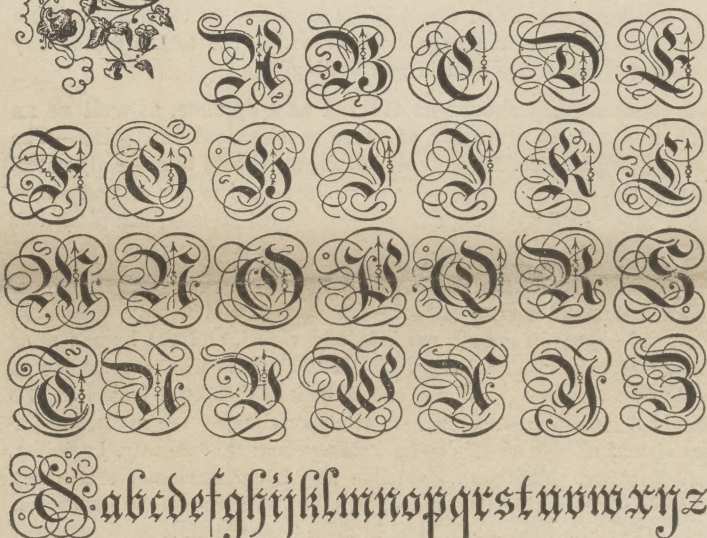 A B C D E
F G H I J K L
M N O P Q R S
T U V W X Y Z
S abcdefghijklmnopqrstuvwxyz